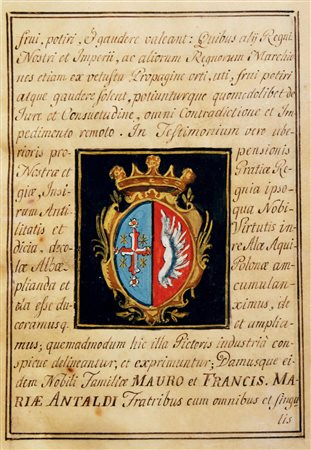 frui, potiri, & gaudere valeant: Quibus alij Regni
Nostri et Imperii, ac aliorum Regnorum Marchio-
nes etiam ex vetusta Propagine orti, uti, frui potiri
atque gaudere solent, potiunturque quomodolibet de
Jure et Consuetudine, omni Contradictione et Im-
pedimento remoto. In Testimonium vero ube-
rioris pro- pensionis
Nostræ et Gratiæ Re-
giæ, Insi- gnia ipso-
rum Anti- qua Nobi-
litatis et Virtutis in-
dicia, deco- re Alæ Aqui-
læ Albæ Polonæ am-
plianda et cumulan-
tia esse du- ximus, de-
coramusq. et amplia-
mus, quemadmodum hic illa Pictoris industria con-
spicue delineantur, et exprimuntur; Damusque ei-
dem Nobili Familiæ MAURO et FRANCIS. MA-
RIÆ ANTALDI Fratribus cum omnibus et singu-
lis